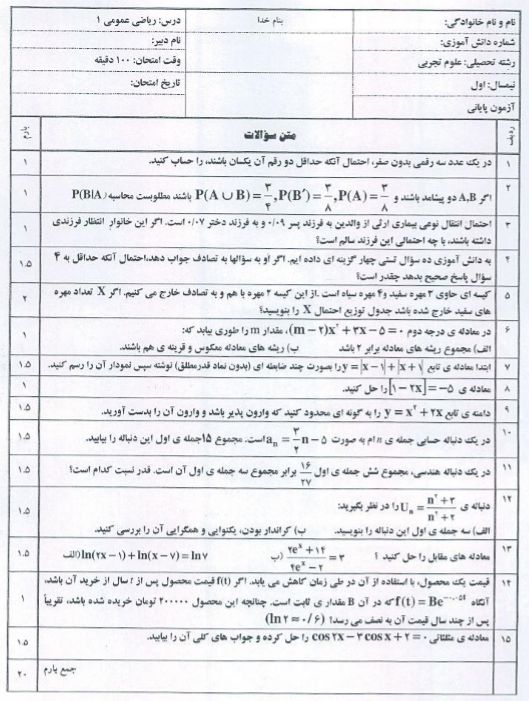 نام و نام خانوادگی:
بنام خدا
درس: ریاضی عمومی ۱
شماره دانش آموزی:
نام دبیر:
رشته تحصیلی: علوم تجربی
وقت امتحان: ۱۰۰ دقیقه
نیمسال: اول
تاریخ امتحان:
آزمون پایانی
ردیف
متن سؤالات
بارم
۱ در یک عدد سه رقمی بدون صفر، احتمال آنکه حداقل دو رقم آن یکسان باشند، را حساب کنید. ۱
۲ اگر A,B دو پیشامد باشند و P(A)=۳/۸ , P(B′)=۳/۸ , P(A∪B)=۳/۴ باشند مطلوبست محاسبه P(B|A) ۱
۳ احتمال انتقال نوعی بیماری ارثی از والدین به فرزند پسر ۰/۰۹ و به فرزند دختر ۰/۰۷ است. اگر این خانوار انتظار فرزندی
داشته باشند، با چه احتمالی این فرزند سالم است؟ ۱
۴ به دانش آموزی ده سؤال تستی چهار گزینه ای داده ایم. اگر او به سؤالها به تصادف جواب دهد،احتمال آنکه حداقل به ۴
سؤال پاسخ صحیح بدهد چقدر است؟ ۱.۵
۵ کیسه ای حاوی ۳ مهره سفید و۴ مهره سیاه است .از این کیسه ۲ مهره با هم و به تصادف خارج می کنیم. اگر X تعداد مهره
های سفید خارج شده باشد جدول توزیع احتمال X را بنویسید؟ ۲
۶ در معادله ی درجه دوم (m−۲)x²+۳x−۵=۰، مقدار m را طوری بیابد که:
الف) مجموع ریشه های معادله برابر ۲ باشد ب) ریشه های معادله معکوس و قرینه ی هم باشند. ۱
۷ ابتدا معادله ی تابع y=|x−۱|+|x+۱| را بصورت چند ضابطه ای (بدون نماد قدرمطلق) نوشته سپس نمودار آن را رسم کنید. ۱.۵
۸ معادله ی [۱−۲x]=−۵ را حل کنید. ۱
۹ دامنه ی تابع y=x²+۲x را به گونه ای محدود کنید که وارون پذیر باشد و وارون آن را بدست آورید. ۱.۵
۱۰ در یک دنباله حسابی جمله ی nام به صورت aₙ=۳/۲n−۵ است. مجموع ۱۵جمله ی اول این دنباله را بیابید. ۱.۵
۱۱ در یک دنباله هندسی، مجموع شش جمله ی اول ۱۶/۲۷ برابر مجموع سه جمله ی اول آن است. قدر نسبت کدام است؟ ۱.۵
۱۲ دنباله ی Uₙ=n²+۳/n²+۲ را در نظر بگیرید:
الف) سه جمله ی اول این دنباله را بنویسید. ب) کراندار بودن، یکنوایی و همگرایی آن را بررسی کنید. ۱.۵
۱۳ معادله های مقابل را حل کنید ؟ ب) ۲eˣ+۱۴/۲eˣ−۲=۳ الف) ln(۲x−۱)+ln(x−۷)=ln۷ ۱.۵
۱۴ قیمت یک محصول، با استفاده از آن در طی زمان کاهش می یابد. اگر f(t) قیمت محصول پس از t سال از خرید آن باشد،
آنگاه f(t)=Be^−۰.۰۵t که در آن B مقداری ثابت است. چنانچه این محصول ۲۰۰۰۰۰ تومان خریده شده باشد، تقریباً
پس از چند سال قیمت آن به نصف می رسد؟ (ln۲≈۰/۶) ۱
۱۵ معادله ی مثلثاتی cos۲x−۳cosx+۲=۰ را حل کرده و جواب های کلی آن را بیابید. ۱.۵
جمع بارم ۲۰